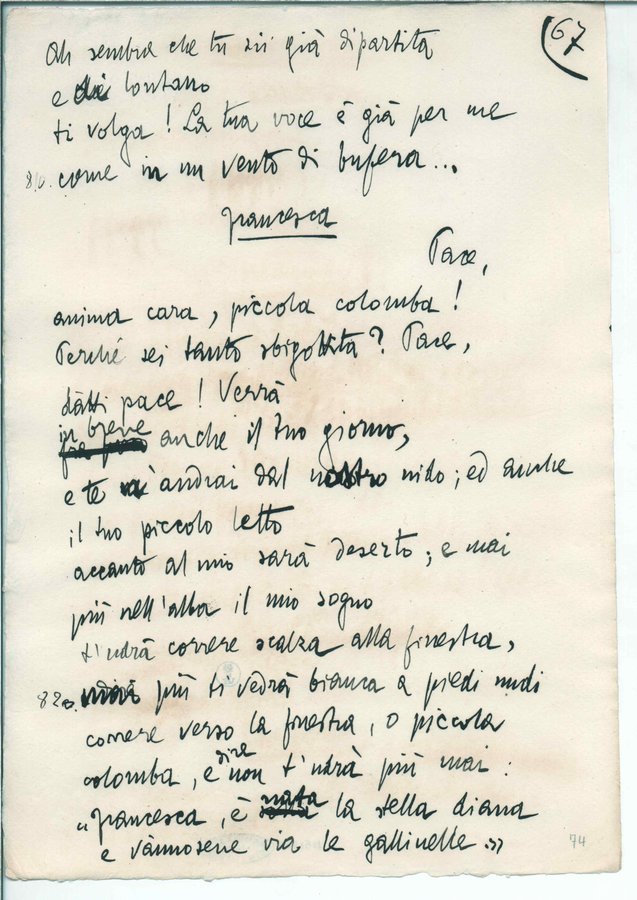 67
Oh sembra che tu sii già dipartita
e di lontano
ti volga! La tua voce è già per me
810. come in un vento di bufera...
Francesca
Pace,
anima cara, piccola colomba!
Perché sei tanto sbigottita? Pace,
dàtti pace! Verrà
in breve
anche il tuo giorno,
e te n'andrai dal nostro nido; ed anche
il tuo piccolo letto
accanto al mio sarà deserto; e mai
più nell'alba il mio sogno
t'udrà correre scalza alla finestra,
820. mai più ti vedrà bianca a piedi nudi
correre verso la finestra, o piccola
colomba, e non t'udrà più mai:
dire
nata
"Francesca, è la stella diana
e vannosene via le gallinelle."
74